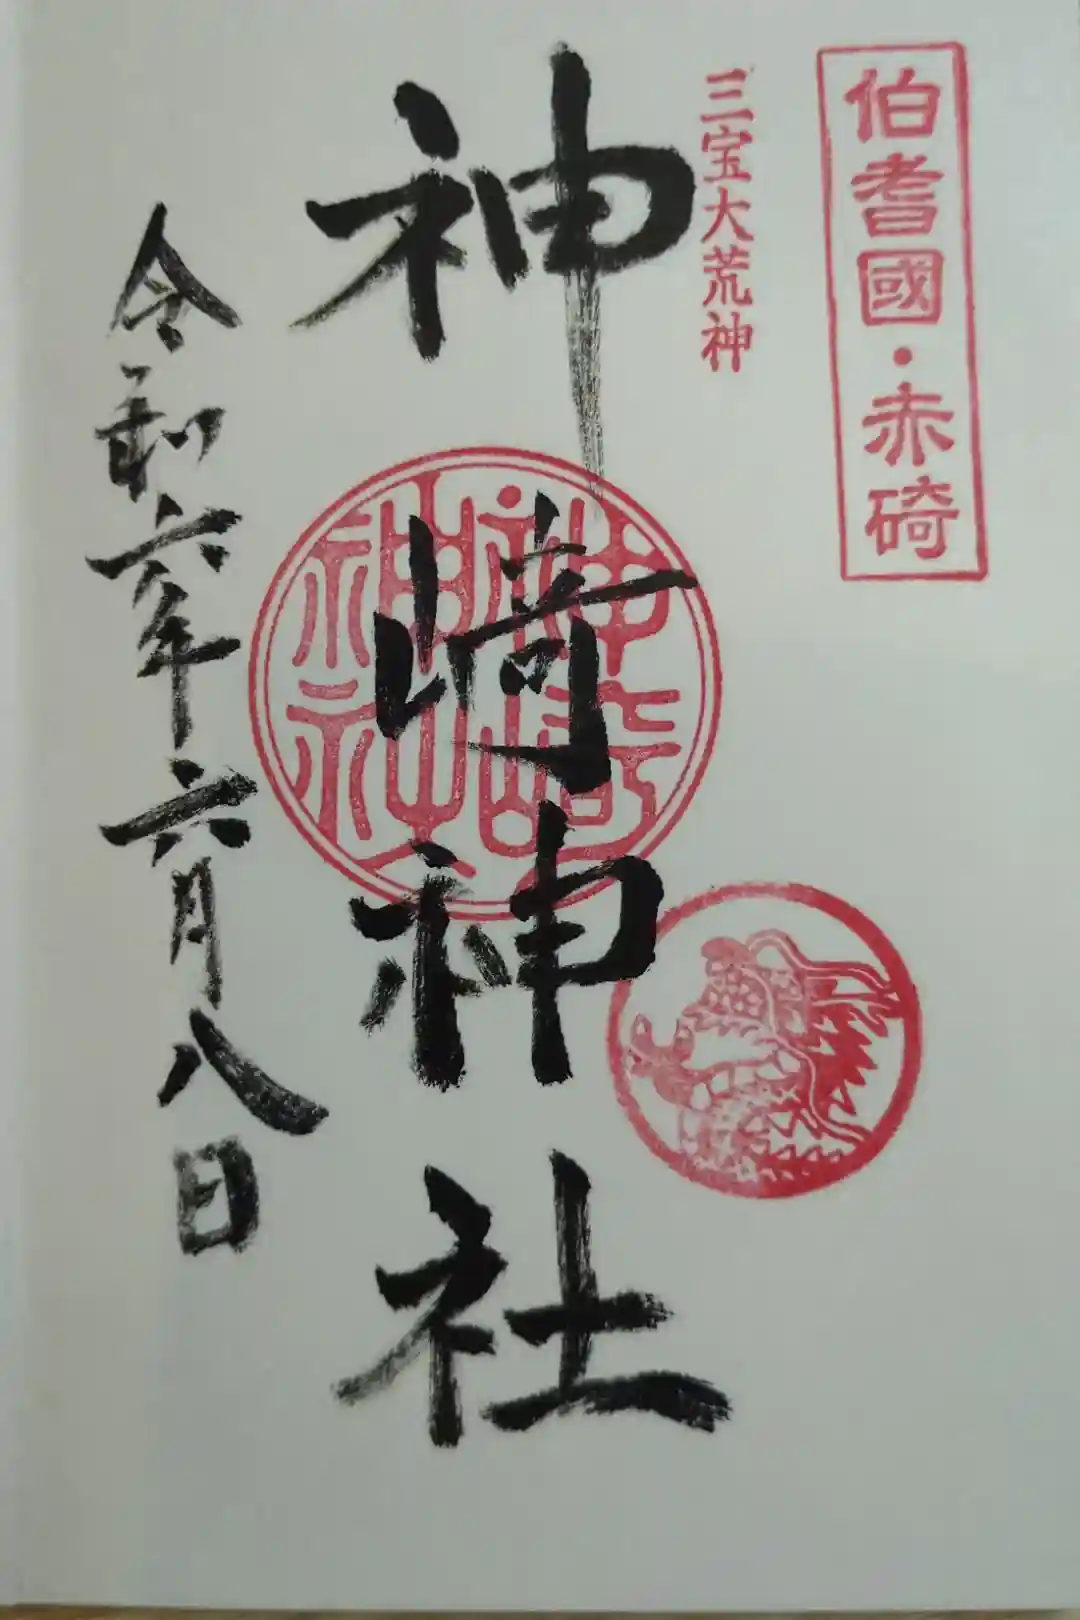 伯耆國・赤碕
三宝大荒神
神崎神社
神﨑神社
令和六年六月八日